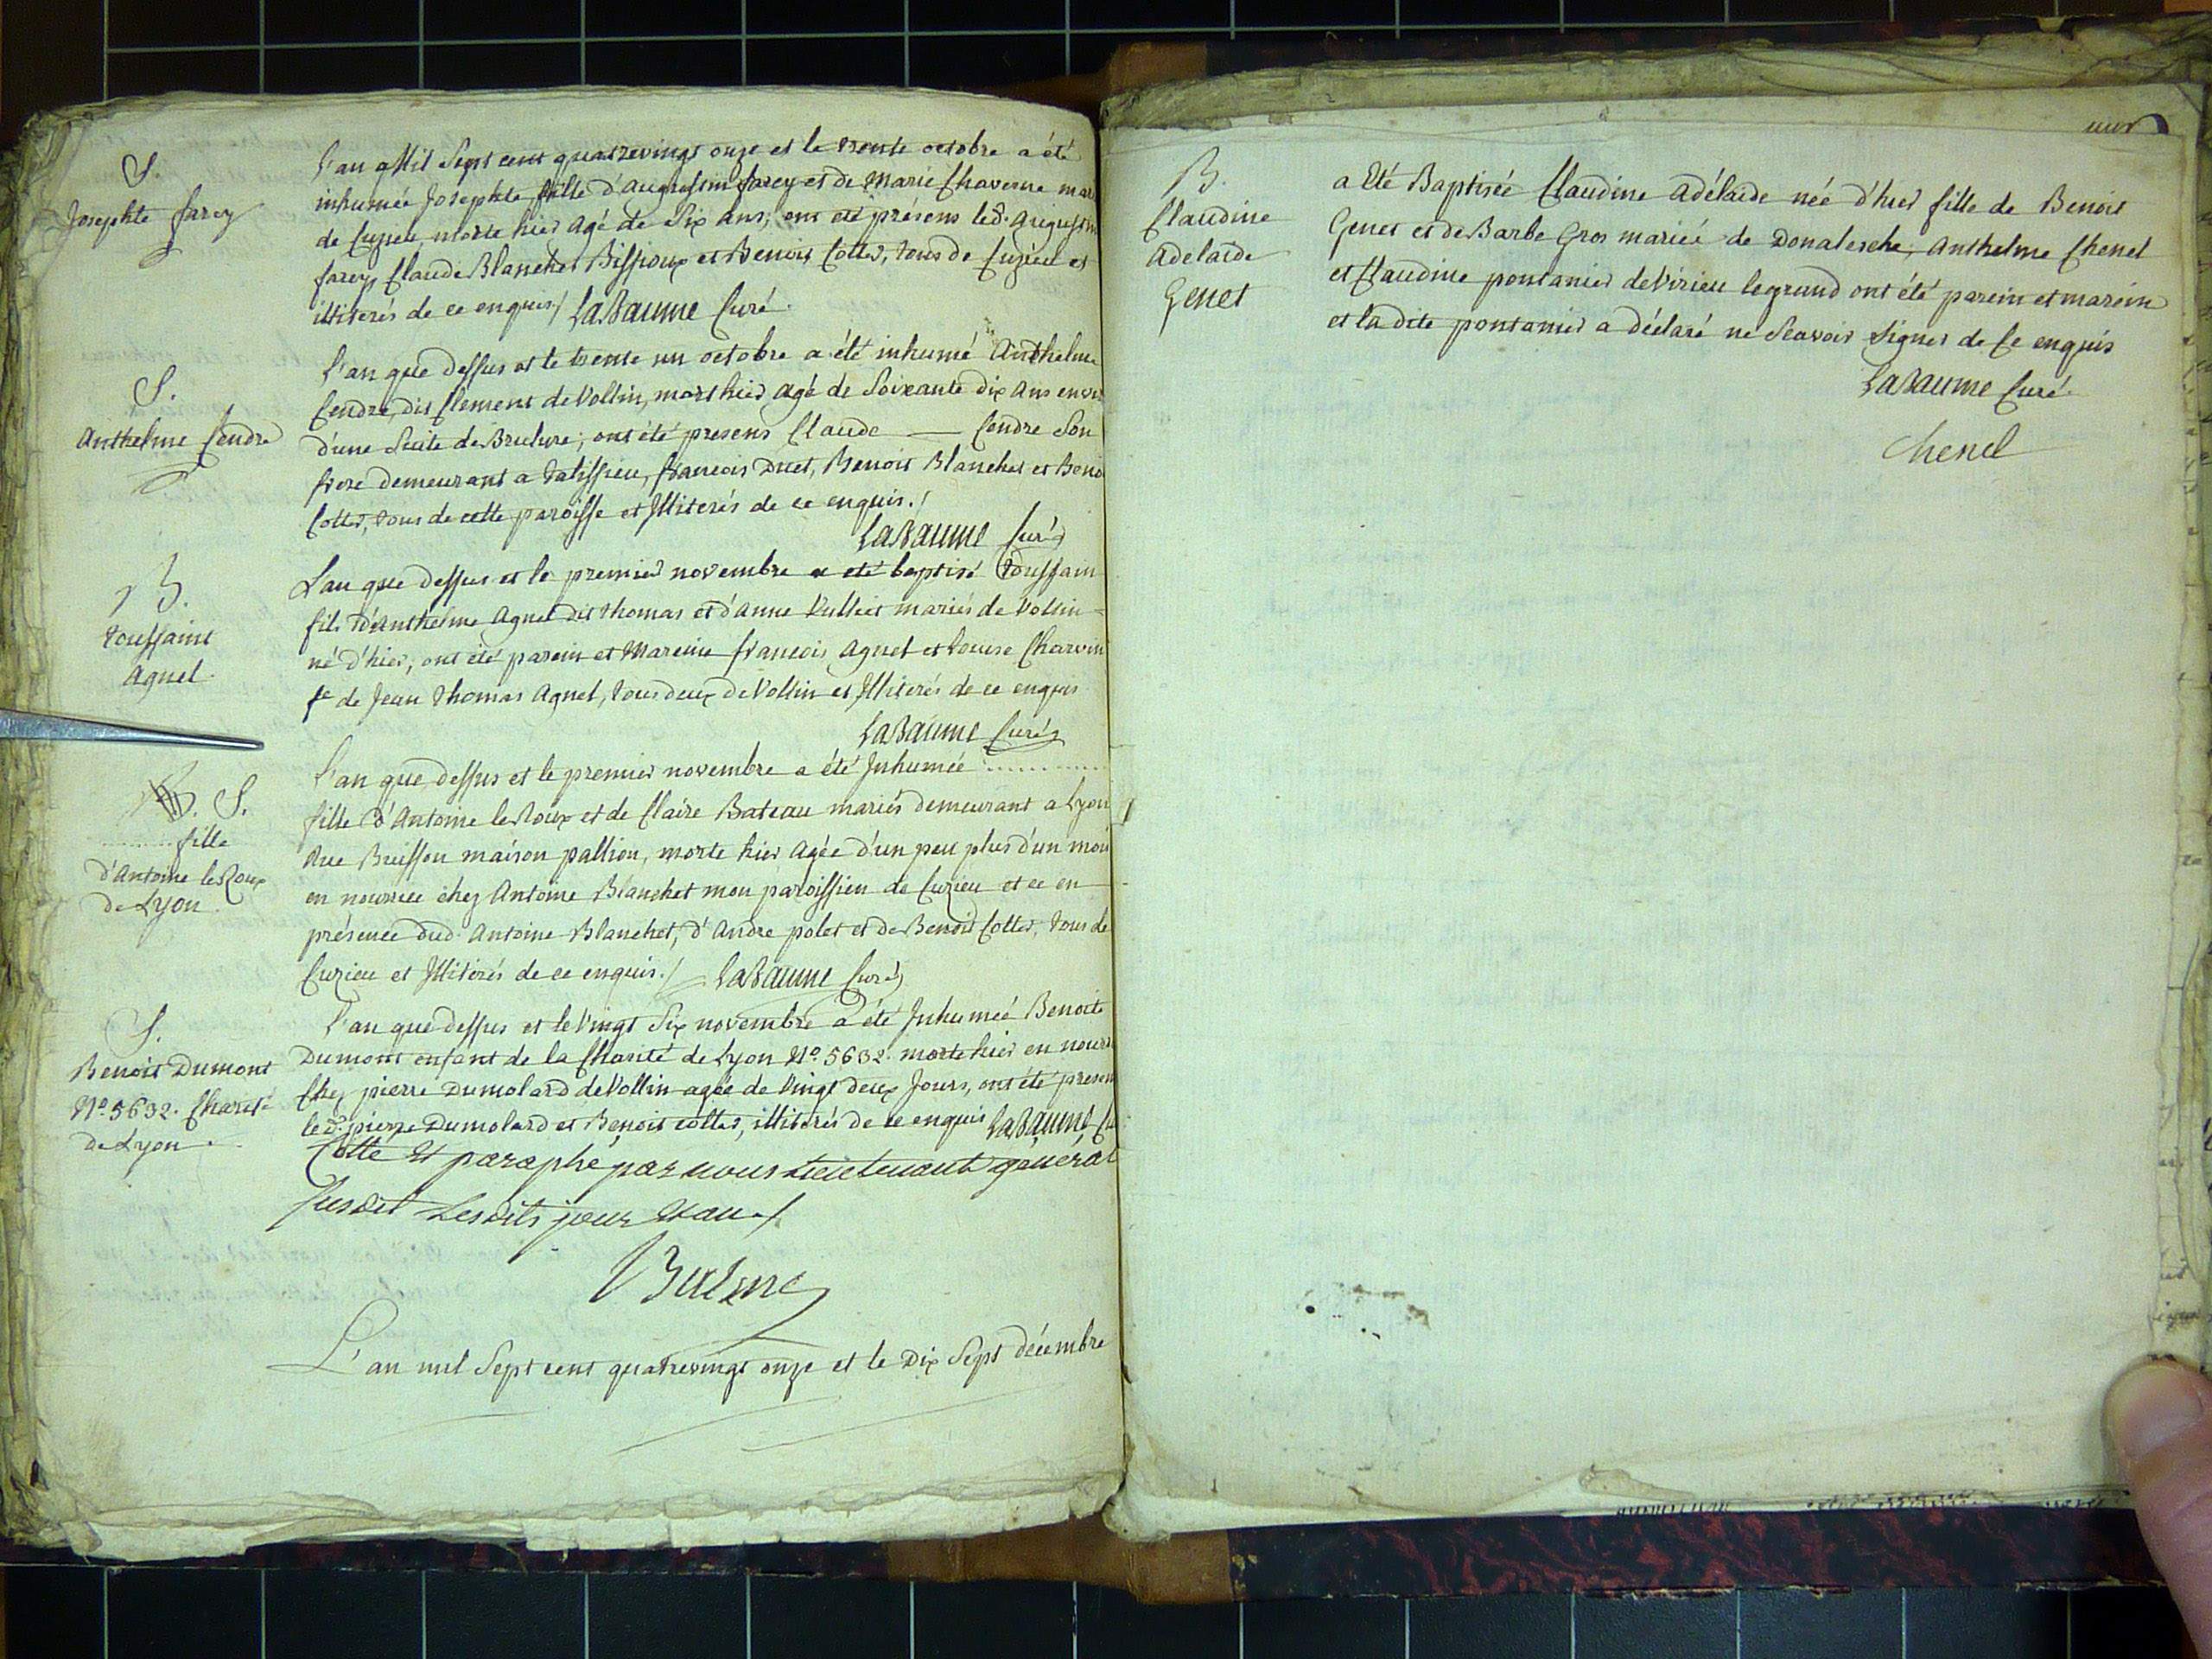 S.
Josephte farcy
L'an Mil Sept cent quatrevingt onze et le trente octobre a été
inhumée Josephte fille d'Augustin farcy et de Marie Chaverne
de Cuzieu, morte hier agé de Six ans; ont eté présens led. Augustin
farcy, Claude Blanchet Bissioux et Benoit Cottet, tous de Cuzieu et
illiterés de ce enquis / LaBaume Curé
S.
Anthelme Cendre
L'an que dessus et le trente un octobre a été inhumé Anthelme
Cendre, dit Clement de Vollin, mort hier agé de Soixante dix ans
d'une Suite de Brulure; ont été presens Claude — Cendre Son
frere demeurant a Talissieu, francois Duet, Benoit Blanchet et
Cottet, tous de cette paroisse et Illiterés de ce enquis. /
LaBaume Curé
B.
toussaint
Agnel
L'an que dessus et le premier novembre a eté baptisé toussain
fils d'Anthelme Agnel dit thomas et d'Anne Vulliet mariés de Vollin
né d'hier, ont été parein et Mareine francois Agnel et Louise Charvin
fe de Jean Thomas Agnel, tous deux de Vollin et Illiterés de ce enquis
LaBaume Curé
S.
fille
d'Antoine le Roux
de Lyon
L'an que dessus et le premier novembre a été Inhumée ............
fille d'Antoine le Roux et de Claire Bateau mariés demeurant a Lyon
Rue Buisson maison pallion, morte hier Agée d'un peu plus d'un moi
en nourrice chez Antoine Blanchet mon paroissien de Cuzieu et ce en
présence dud. Antoine Blanchet, d'Andre polet et de Benoit Cottet, tous de
Cuzieu et Illiterés de ce enquis. / LaBaume Curé
S.
Benoit Dumont
No. 5632. Charité
de Lyon
L'an que dessus et le Vingt Six novembre a été Inhumeé Benoite
Dumont enfant de la Charité de Lyon No. 5632. morte hier en
Chez pierre Dumolard de Vollin agée de Vingt deux Jours, ont été
led. pierre Dumolard et Benoit cottet, illiterés de ce enquis LaBaume
Cotté Et paraphé par nous Lieutenant général
susdit Lesdits jour Et an /
Balme
L'an mil Sept cent quatrevingt onze et le Dix Sept décembre
B.
Claudine
Adelaide
Genet
a Eté Baptisée Claudine Adélaide née d'hier fille de Benoit
Genet et de Barbe Gros marieé de Donalesche, Anthelme Chenel
et Claudine pontanier de Virieu le grand ont été parein et marein
et la dite pontanier a déclaré ne Scavoir signer de Ce enquis
LaBaume Curé
Chenel